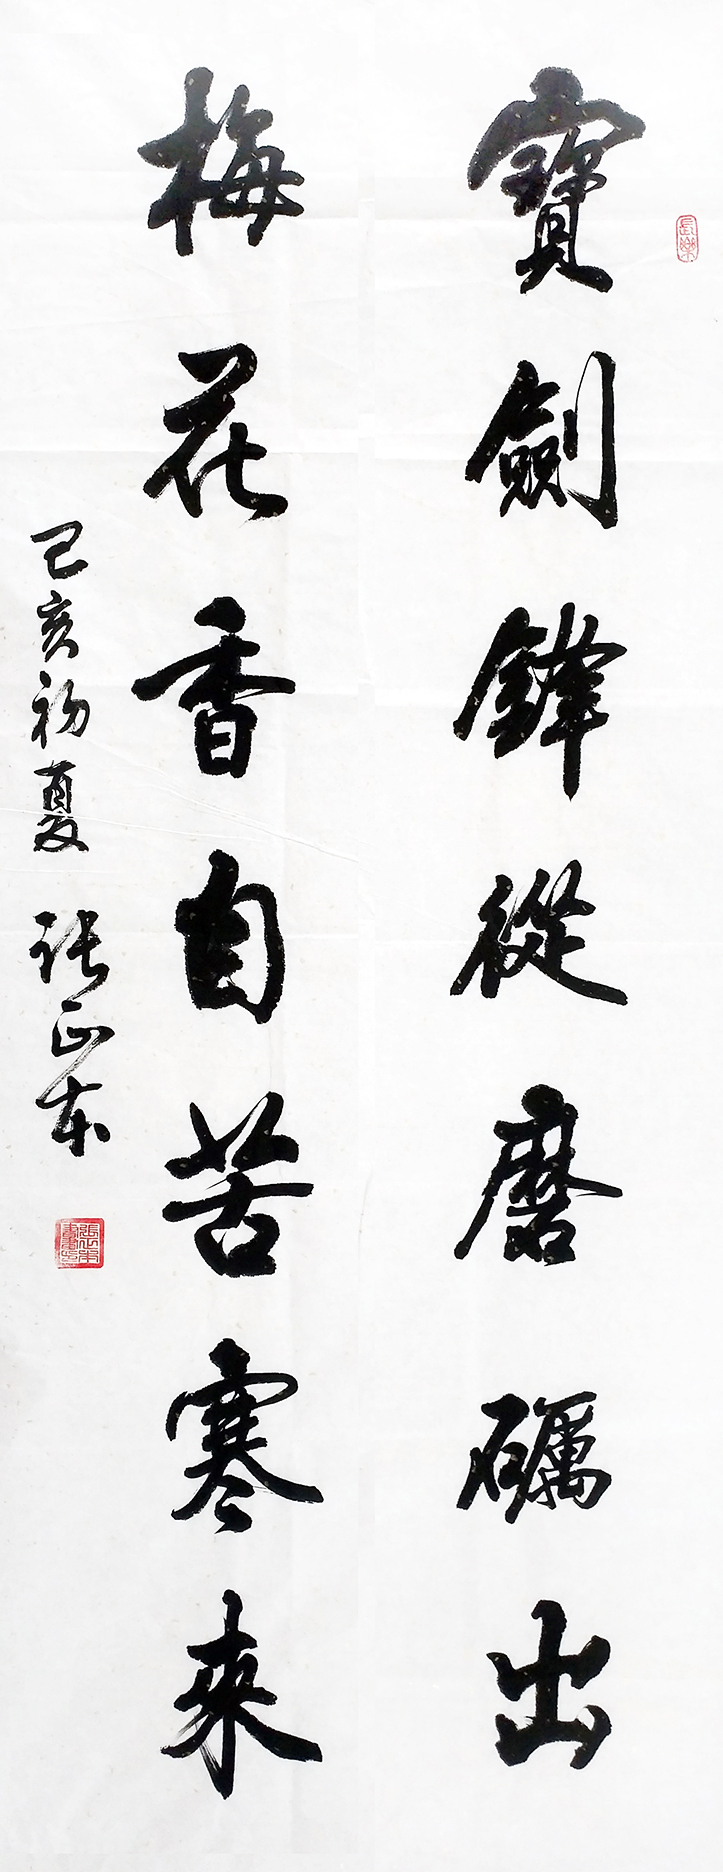 寶劍鋒從磨礪出
梅花香自苦寒來
己亥初夏 張正東
長樂